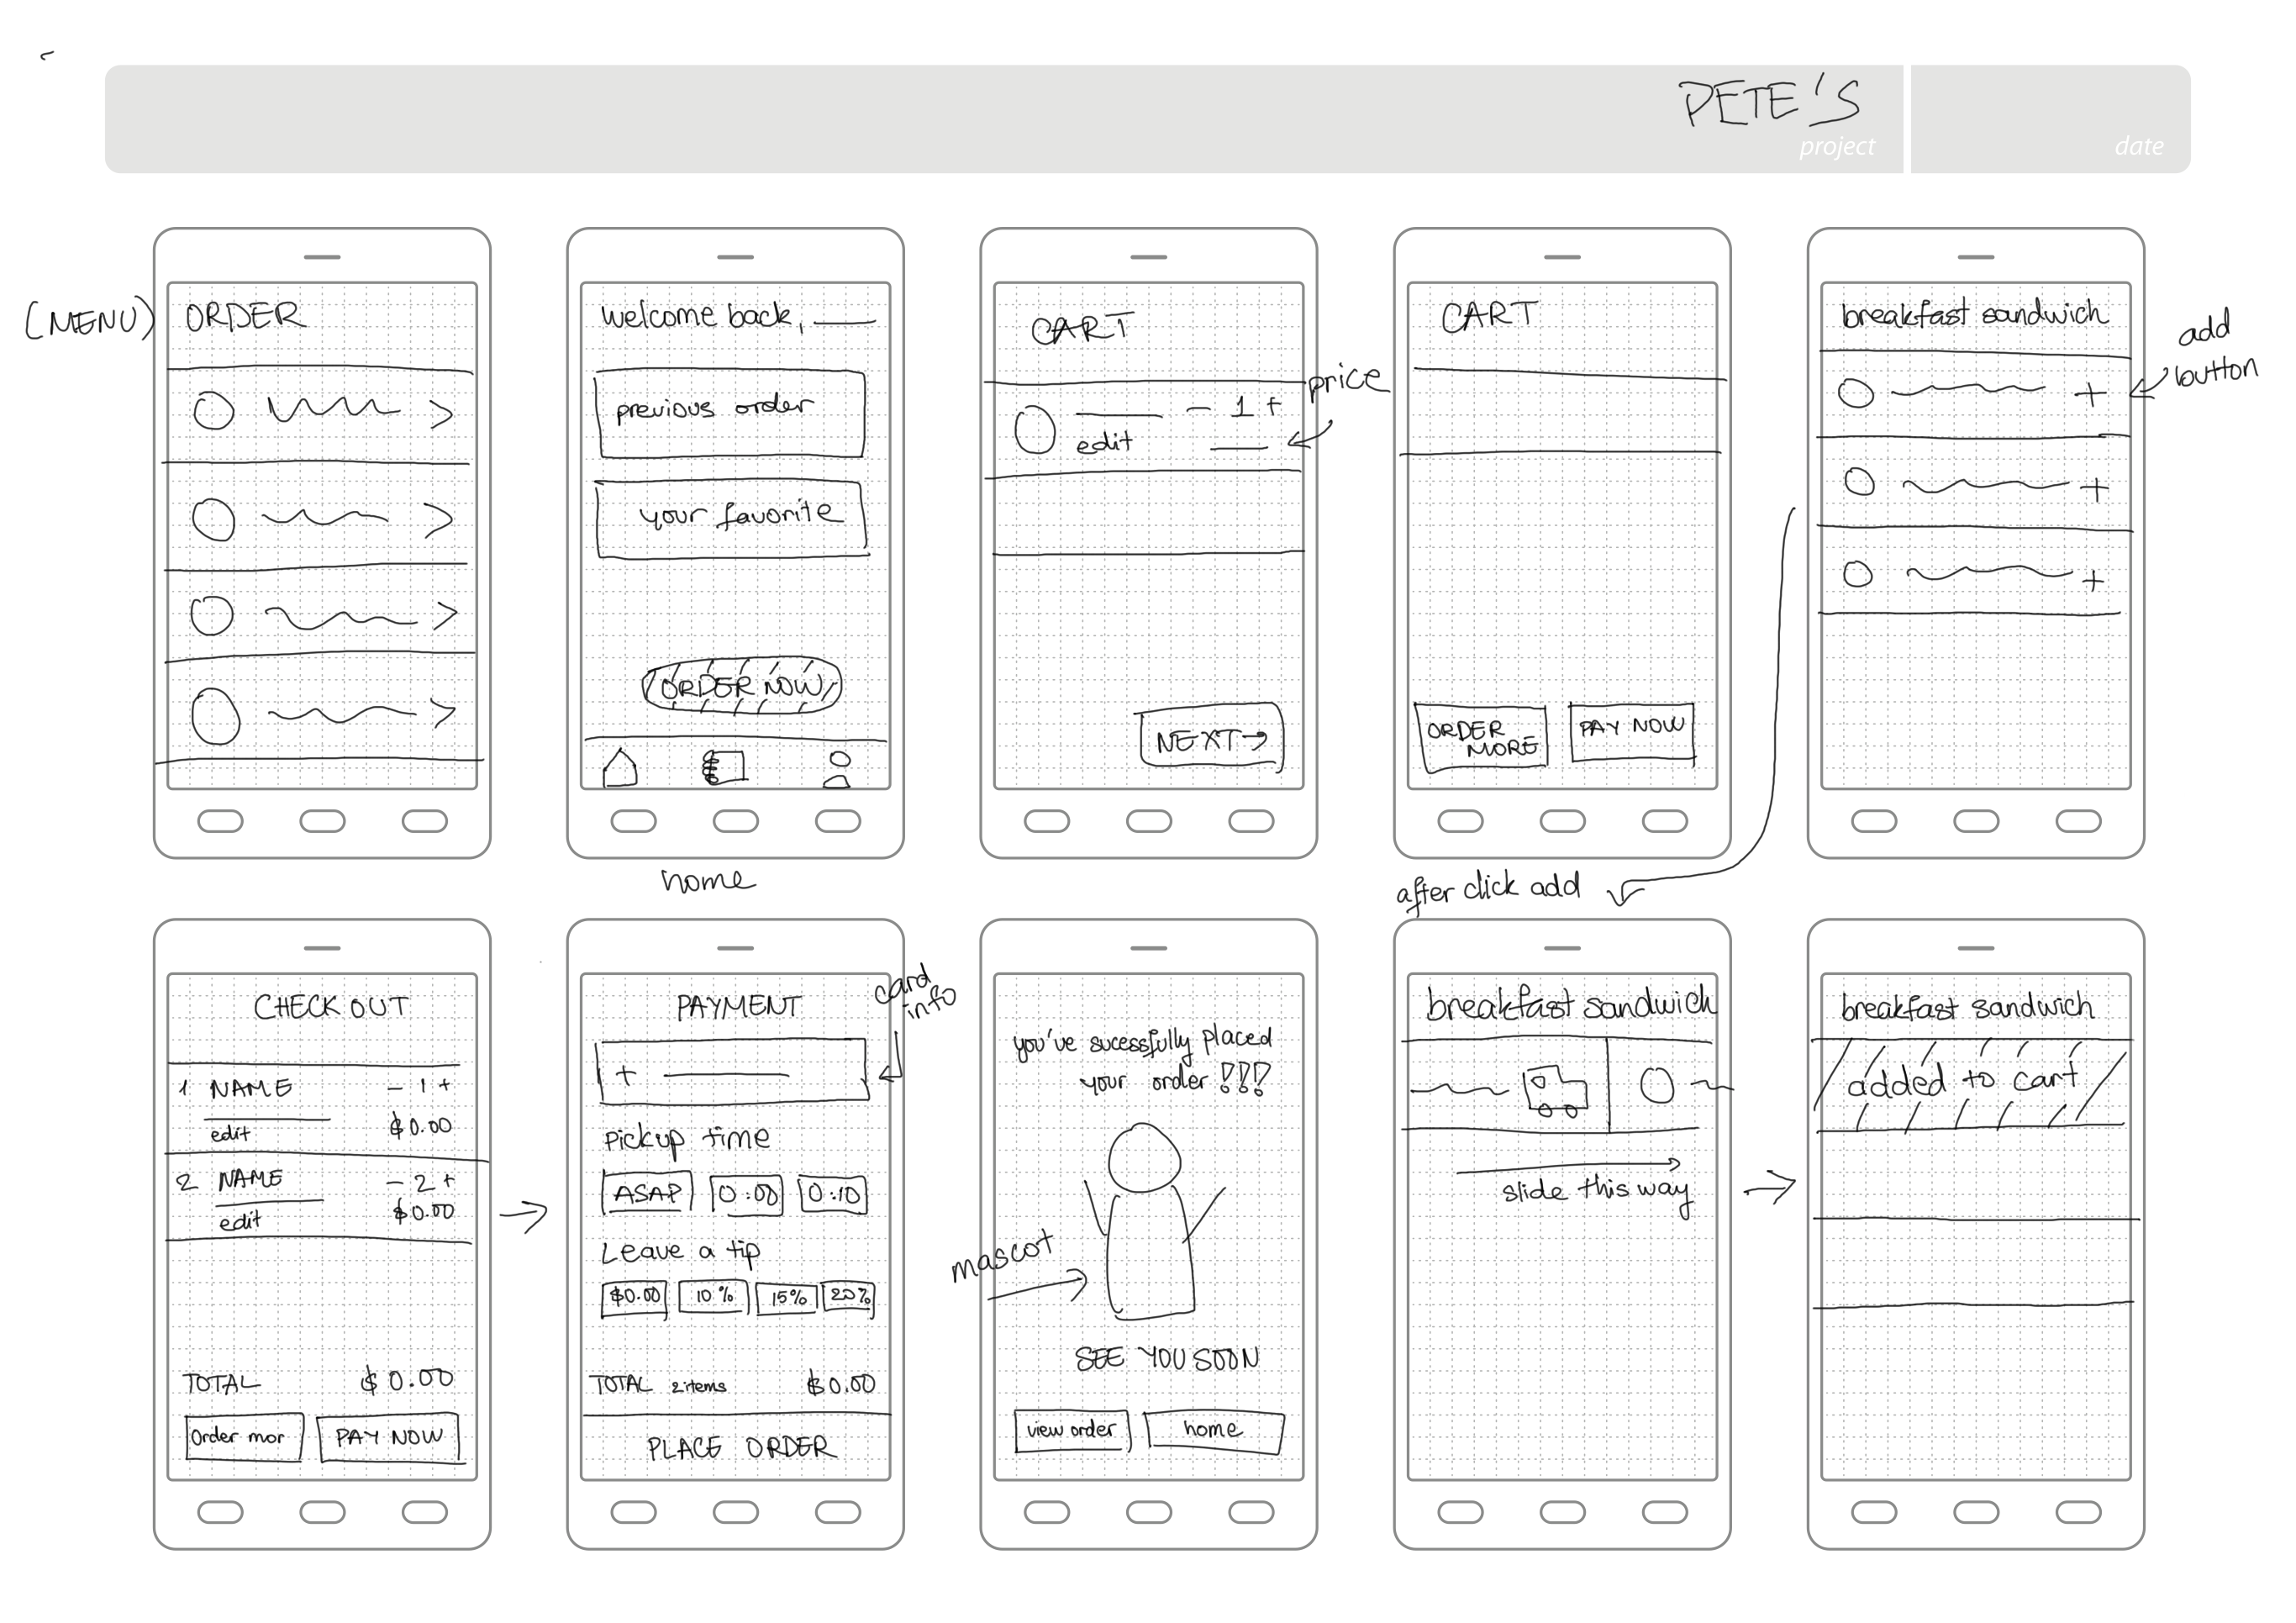 PETE'S
project
date
(MENU)
ORDER
welcome back,
previous order
your favorite
ORDER NOW
home
CART
- 1 +
edit
price
NEXT →
CART
ORDER
MORE
PAY NOW
breakfast sandwich
+
+
+
add
button
after click add
CHECK OUT
1 NAME - 1 +
edit $0.00
2 NAME - 2 +
edit $0.00
TOTAL $0.00
Order mor
PAY NOW
PAYMENT
+
card
info
Pickup time
ASAP 0:00 0:10
Leave a tip
$0.00 10% 15% 20%
TOTAL 2 items $0.00
PLACE ORDER
you've sucessfully placed
your order !!!
mascot
SEE YOU SOON
view order
home
breakfast sandwich
slide this way
breakfast sandwich
added to cart